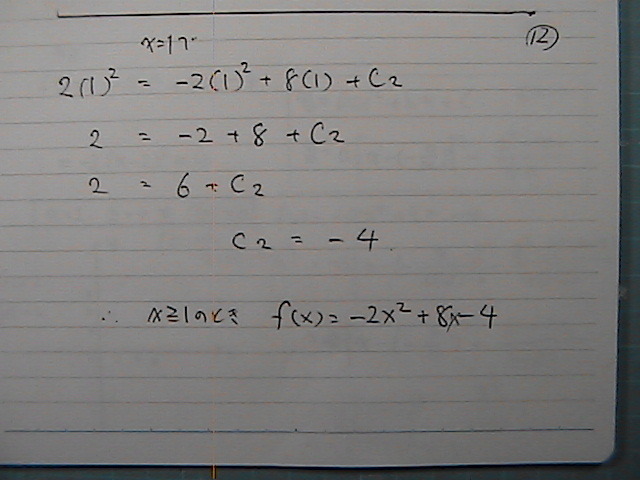 ⑫
x=1で
2(1)² = -2(1)² + 8(1) + C₂
2 = -2 + 8 + C₂
2 = 6 + C₂
C₂ = -4.
∴ x≧1のとき f(x) = -2x² + 8x - 4